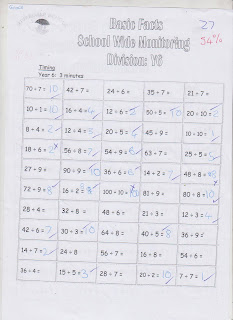 Basic Facts
27
School Wide Monitoring
54%
Division: Y6
Timing
Year 6: 3 minutes
70 ÷ 7 = 10 42 ÷ 7 = 24 ÷ 6 = 35 ÷ 7 = 21 ÷ 7 =
10 ÷ 1 = 10 16 ÷ 4 = 4 12 ÷ 6 = 2 50 ÷ 5 = 10 20 ÷ 10 = 2
8 ÷ 4 = 2 12 ÷ 4 = 3 20 ÷ 5 = 4 45 ÷ 9 = 10 ÷ 10 = 1
18 ÷ 6 = 56 ÷ 8 = 54 ÷ 9 = 6 63 ÷ 7 = 25 ÷ 5 =
27 ÷ 9 = 90 ÷ 9 = 10 36 ÷ 6 = 6 14 ÷ 2 = 7 48 ÷ 8 =
72 ÷ 9 = 8 16 ÷ 2 = 8 100 ÷ 10 = 81 ÷ 9 = 80 ÷ 8 = 10
28 ÷ 4 = 32 ÷ 8 = 48 ÷ 6 = 21 ÷ 3 = 12 ÷ 3 = 4
42 ÷ 6 = 7 30 ÷ 3 = 10 64 ÷ 8 = 40 ÷ 5 = 8 36 ÷ 9 =
14 ÷ 7 = 2 24 ÷ 8 = 56 ÷ 7 = 18 ÷ 8 = 54 ÷ 6 =
36 ÷ 4 = 15 ÷ 5 = 3 28 ÷ 7 = 20 ÷ 2 = 10 7 ÷ 7 = 1